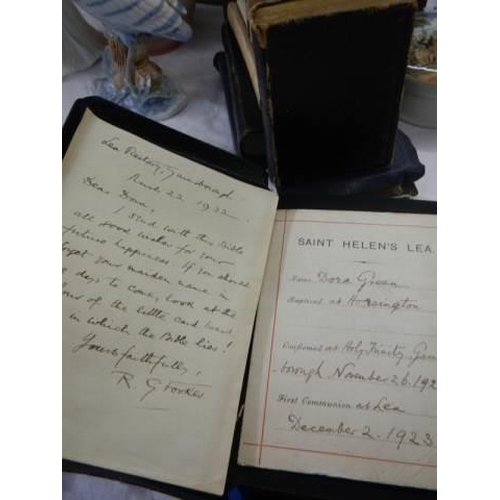 Lea Rectory, Gainsborough.
March 22, 1932
Dear Dora,
I send with this Bible
all good wishes for your
future happiness. If you should
forget your maiden name in
the days to come, look at the
of the little card
in which the Bible lies!
Yours faithfully,
R G
SAINT HELEN'S LEA.
Name Dora Green
Baptised at
Confirmed at Holy Trinity, Gains
borough November 26, 192
First Communion at Lea
December 2, 1923